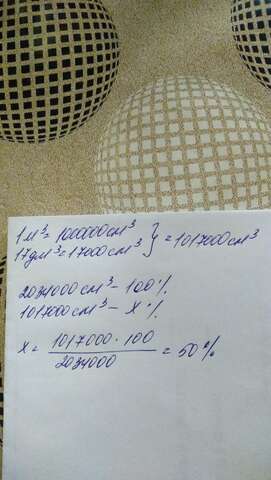 1 м³ = 1000000 см³
17 дм³ = 17000 см³ } = 1017000 см³
2034000 см³ - 100 %
1017000 см³ - X %
X = 1017000 · 100 / 2034000 = 50 %